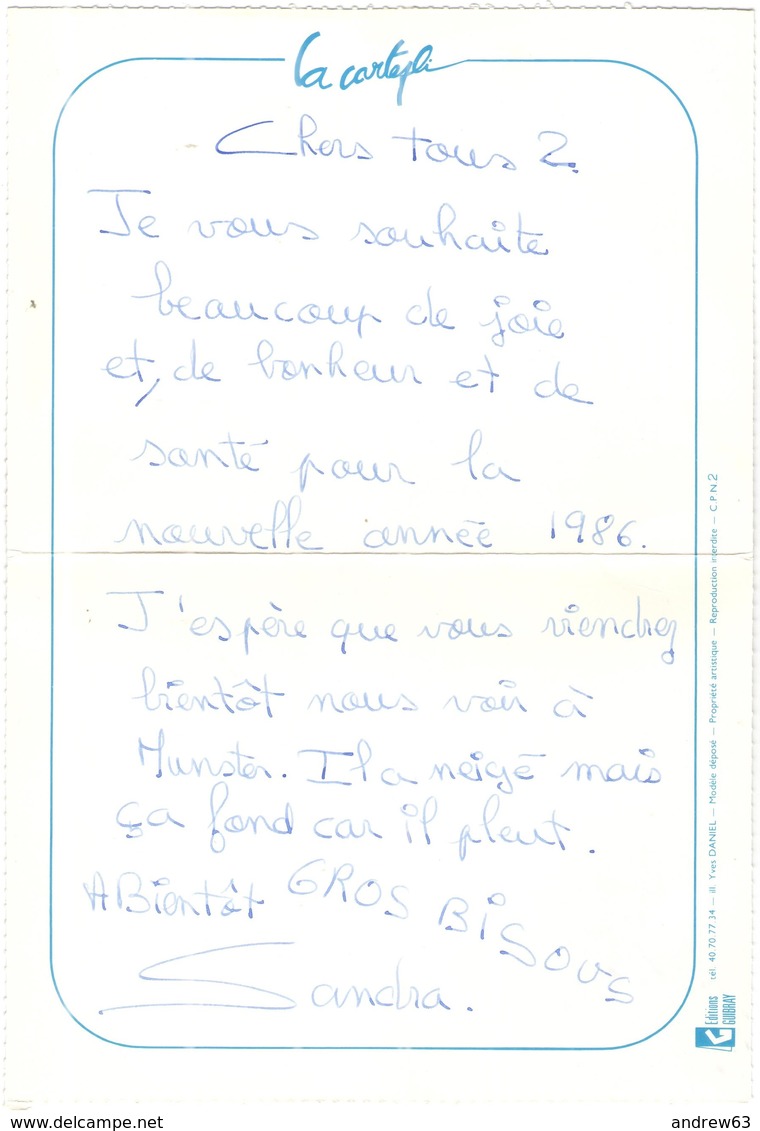 La cartepli
Chers tous 2.
Je vous souhaite
beaucoup de joie
et, de bonheur et de
santé pour la
nouvelle année 1986.
J'espère que vous viendrez
bientôt nous voir à
Munster. Il a neigé mais
ça fond car il pleut.
A Bientôt GROS BISOUS
Sandra.
Editions
GUIBRAY
tél. 40.70.77 34 — ill. Yves DANIEL — Modèle déposé — Propriété artistique — Reproduction interdite — C.P.N 2
delcampe.net
andrew63